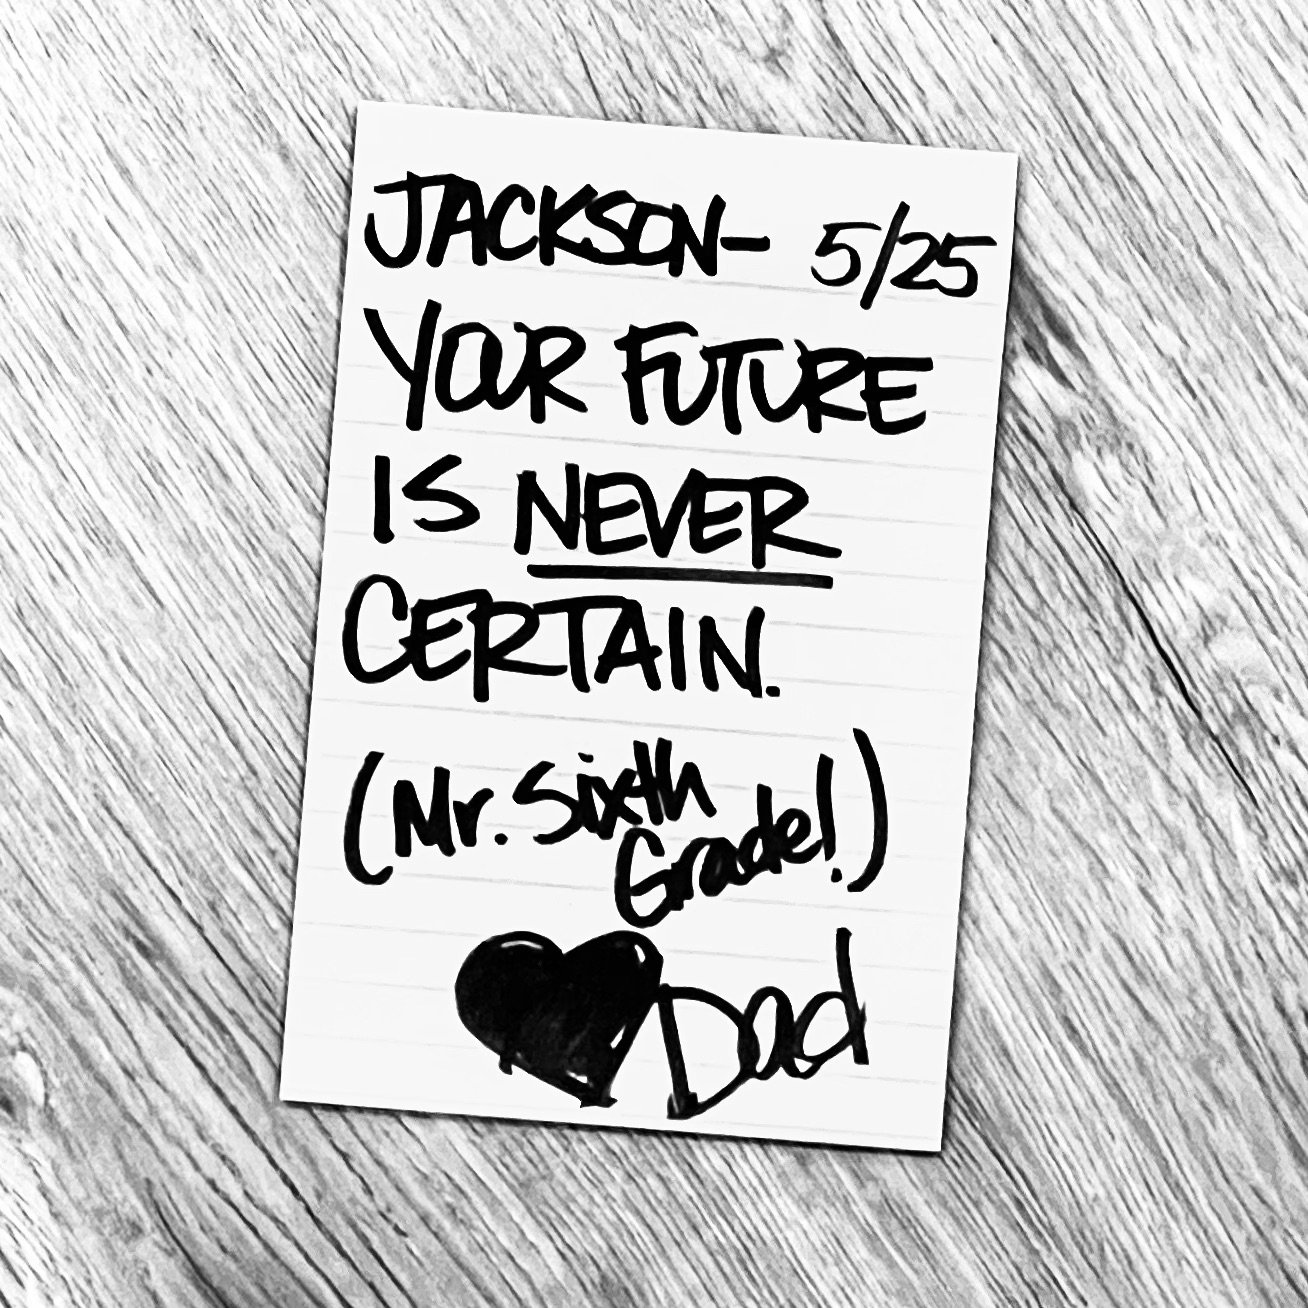 JACKSON- 5/25
YOUR FUTURE
IS NEVER
CERTAIN.
(Mr. Sixth
Grade!)
Dad